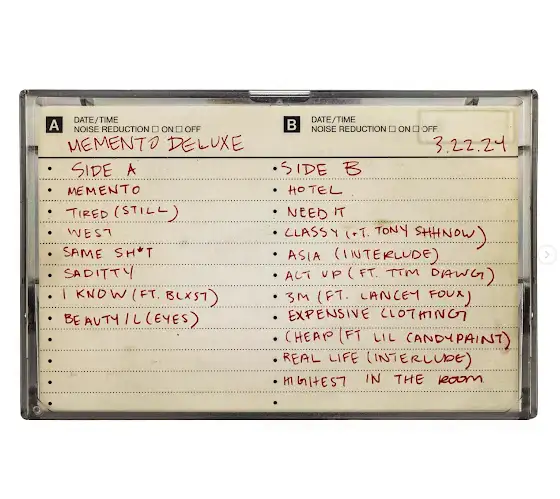 A DATE/TIME
NOISE REDUCTION ☐ ON ☐ OFF
MEMENTO DELUXE
SIDE A
MEMENTO
TIRED (STILL)
WEST
SAME SH*T
SADITTY
I KNOW (FT. BLXST)
BEAUTY/L(EYES)
B DATE/TIME
NOISE REDUCTION ☐ ON ☐ OFF
3.22.24
SIDE B
HOTEL
NEED IT
CLASSY (FT. TONY SHHNOW)
ASIA (INTERLUDE)
ACT UP (FT. TTM DAWG)
3M (FT. LANCEY FOUX)
EXPENSIVE CLOTHING
CHEAP (FT LIL CANDYPAINT)
REAL LIFE (INTERLUDE)
HIGHEST IN THE ROOM